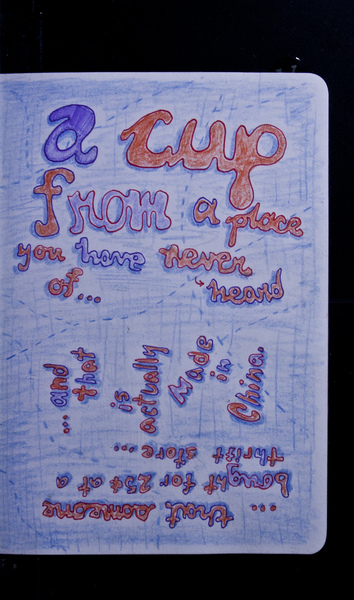 a cup
from a place
you have never
heard
of...
...and
that
is
actually
Made
in
China.
that someone
...bought for 25¢ at a
thrift store...